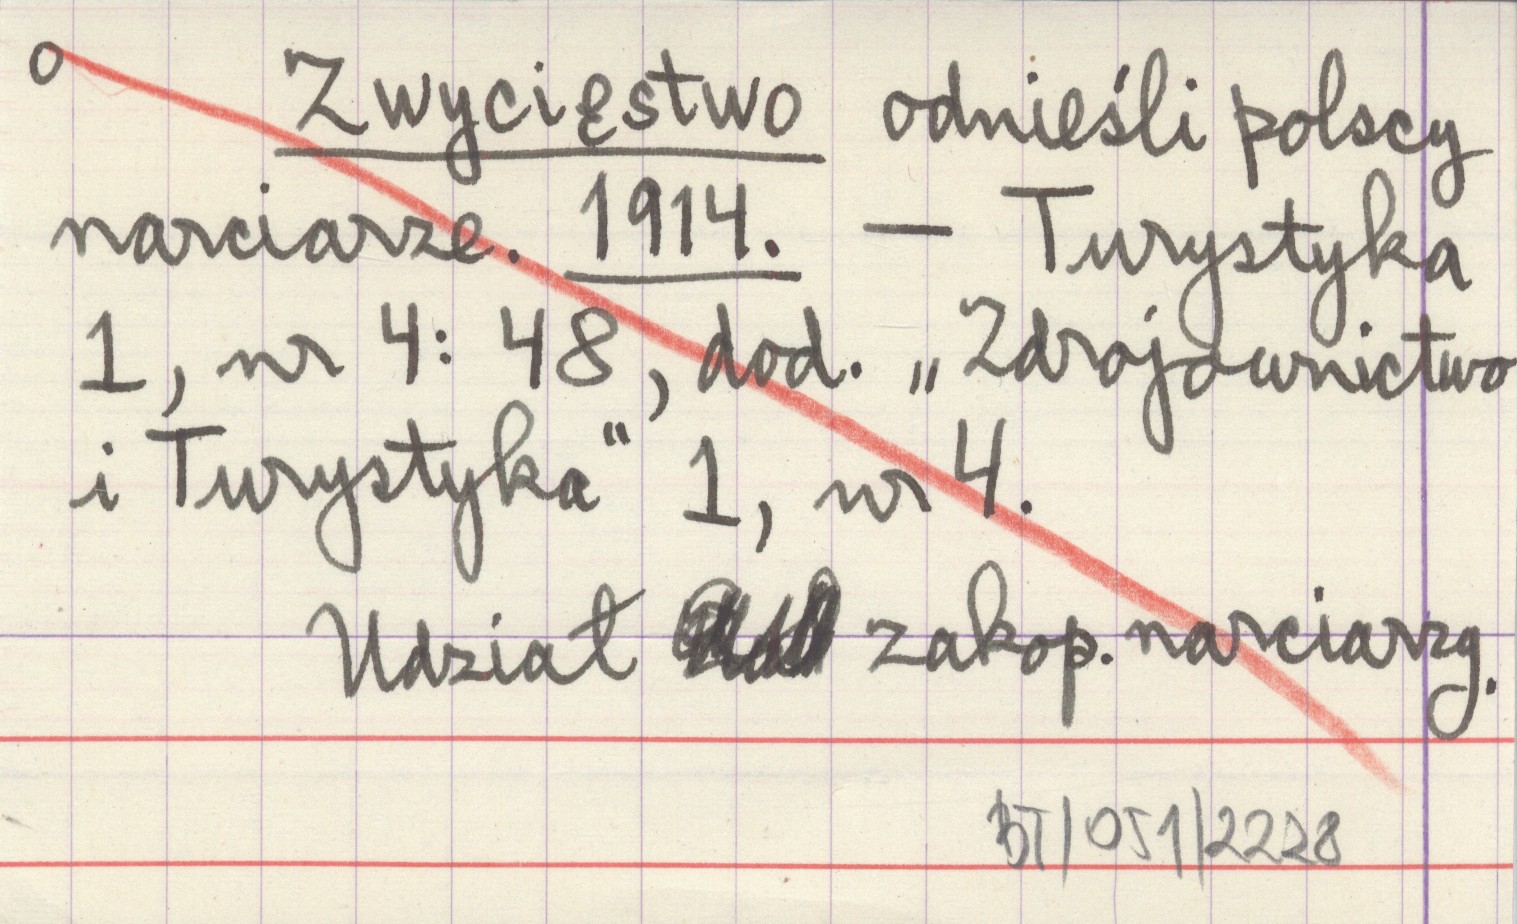 o Zwycięstwo odnieśli polscy
narciarze. 1914. — Turystyka
1, nr 4: 48, dod. „Zdrojownictwo
i Turystyka" 1, nr 4.
Udział zakop. narciarzy.
BT/051/2228